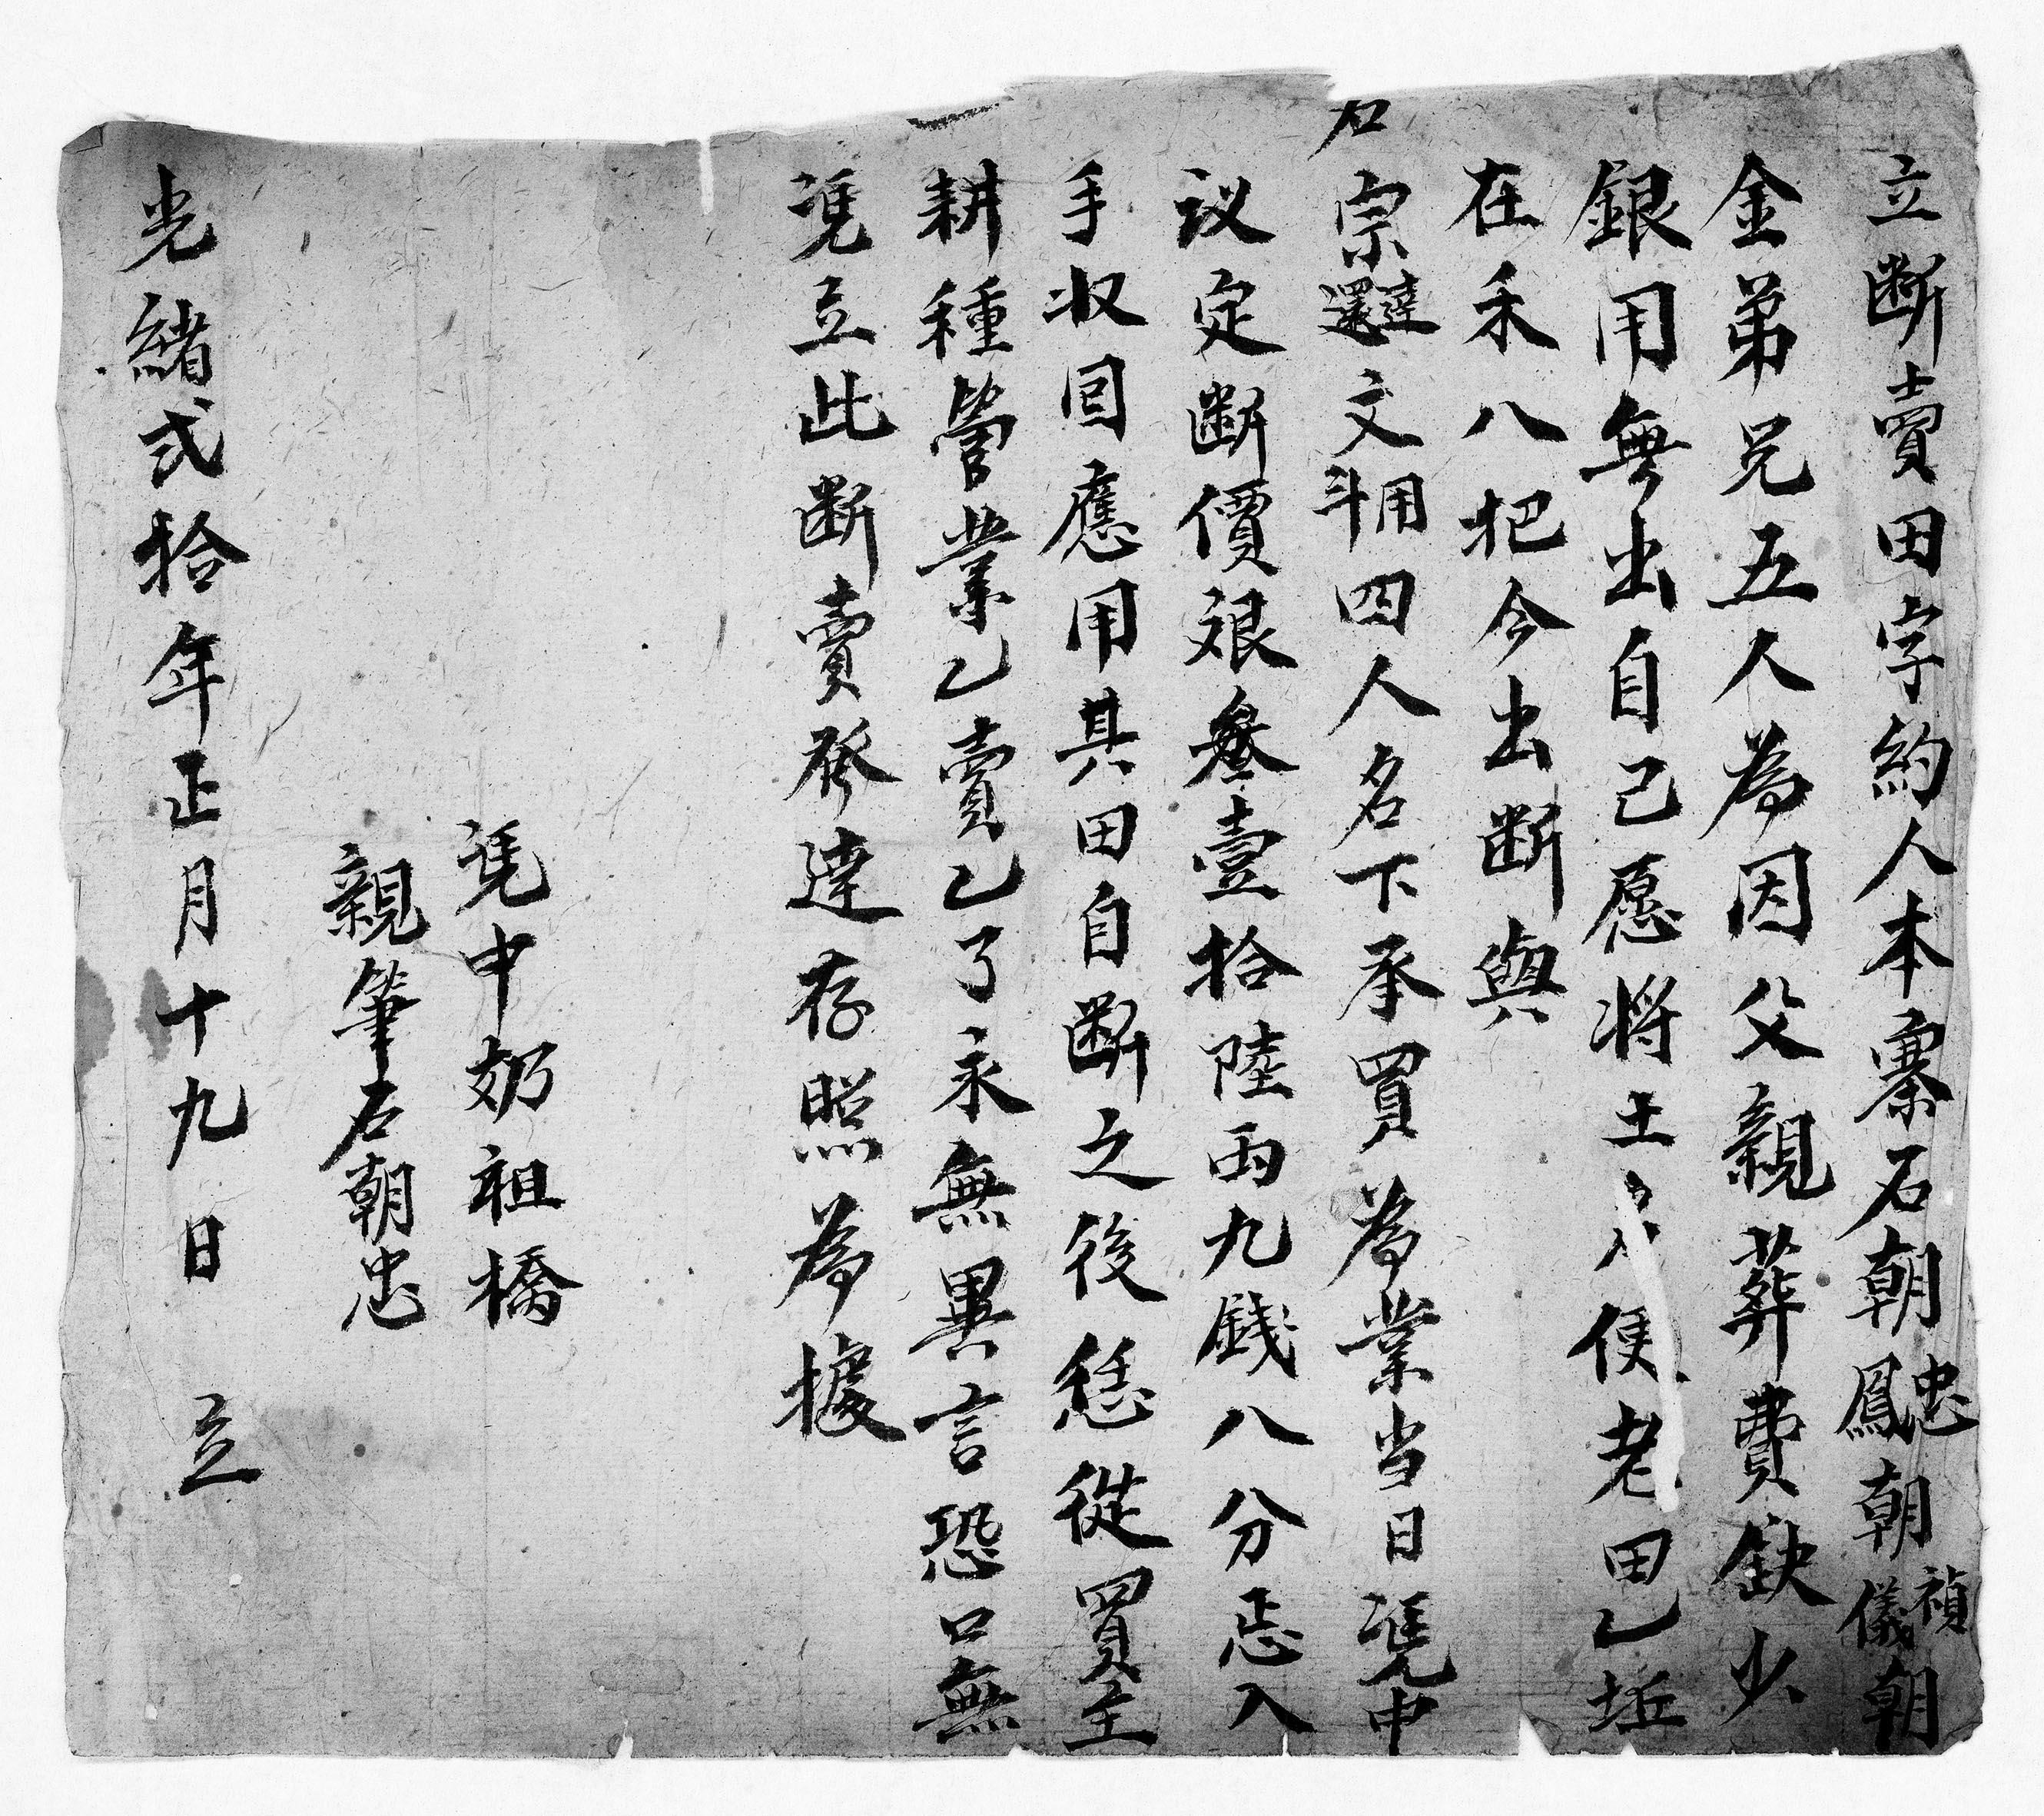 立断賣田字約人本寨石朝忠鳳朝禎儀朝
金弟兄五人為因父親葬費缺少
銀用無出自己愿将土 便老田乙坵
在禾八把今出断與
石宗達還文用斗四人名下承買為業当日凴中
议定断價艮叁壹拾陸两九銭八分悉入
手收回應用其田自断之後恁從買主
耕種管業乙賣乙了永無異言恐口無
凴立此断賣發達存照為據
凴中奶祖橋
親筆石朝忠
光緒式拾年正月十九日立